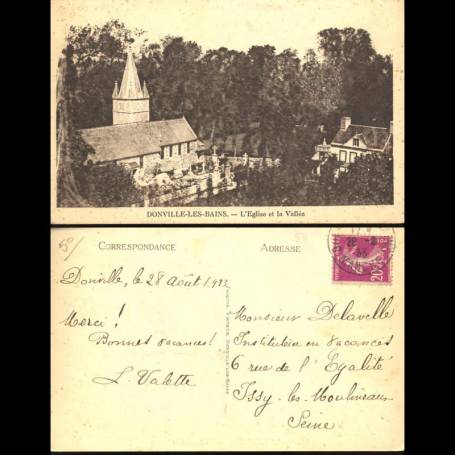 DONVILLE-LES-BAINS. — L'Eglise et la Vallée
CORRESPONDANCE
ADRESSE
Donville, le 28 Août 1933
Merci !
Bonnes vacances !
L. Valette
Monsieur Delavelle
Instituteur en vacances
6 rue de l'Egalité
Issy-les-Moulineaux
Seine